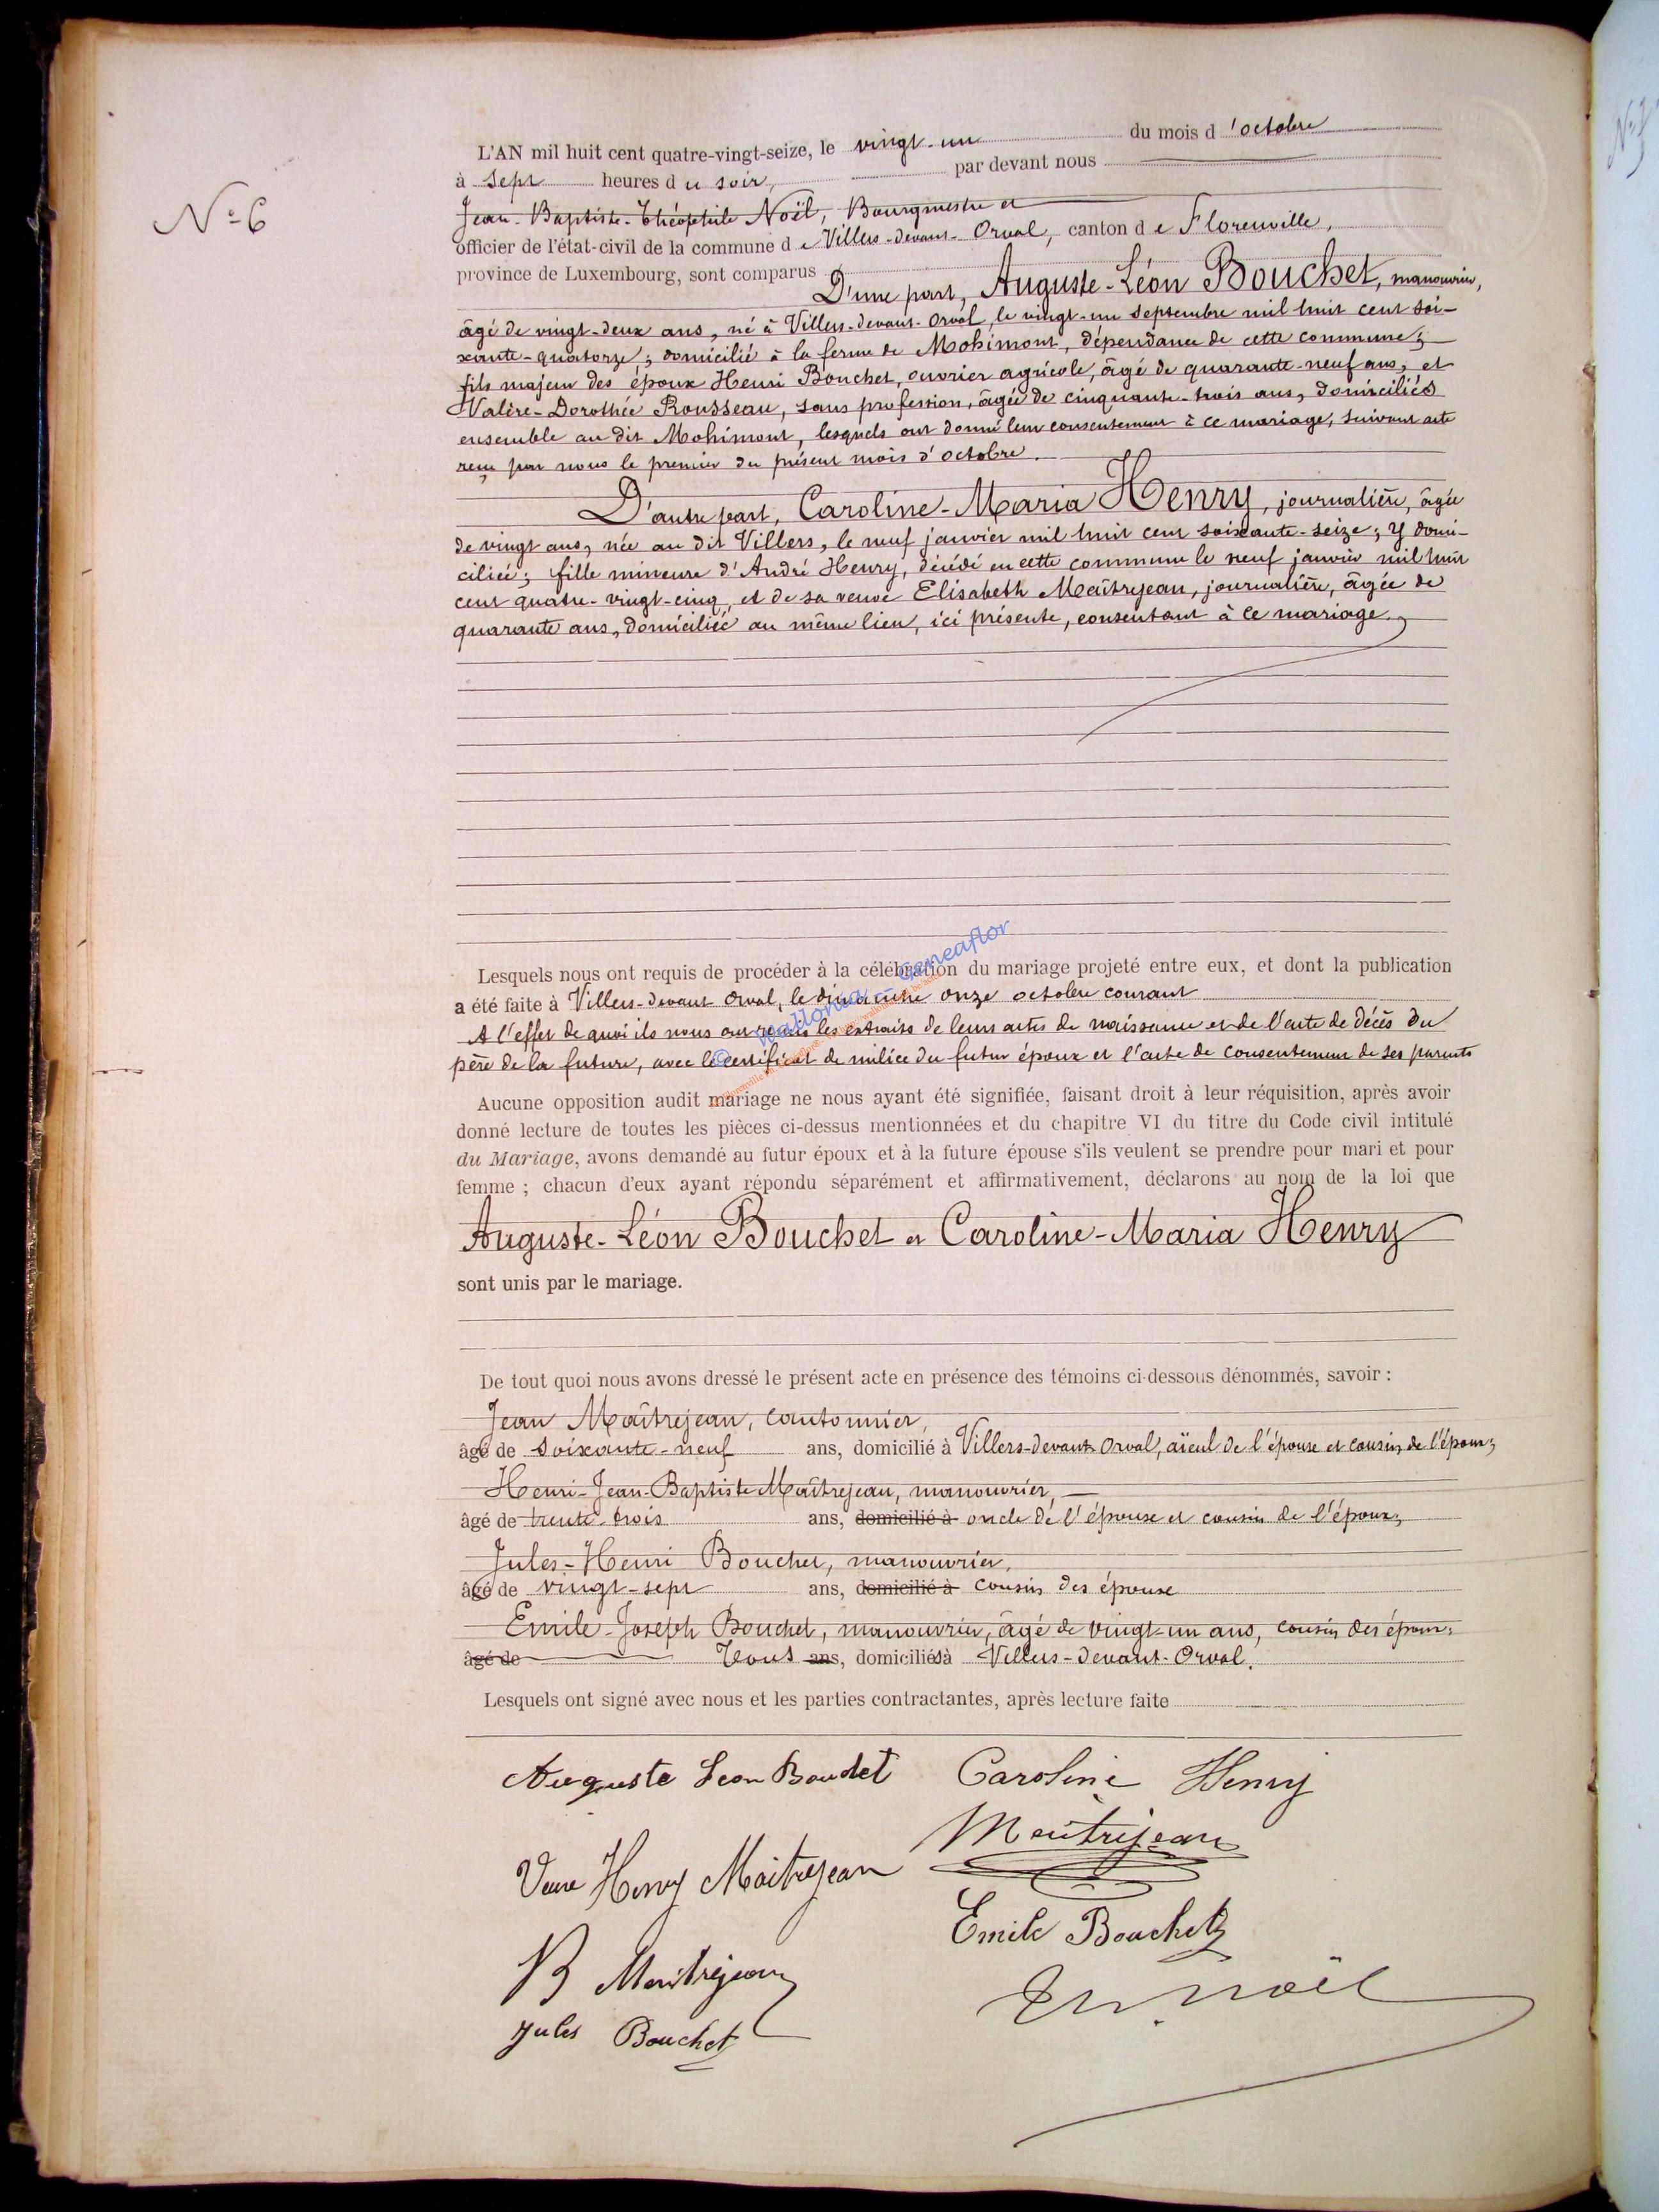 N° 6
L'AN mil huit cent quatre-vingt-seize, le vingt-un du mois d'octobre
à sept heures du soir, par devant nous
Jean-Baptiste-Théophile Noël, Bourgmestre et
officier de l'état-civil de la commune de Villers-devant-Orval, canton de Florenville,
province de Luxembourg, sont comparus
D'une part, Auguste-Léon Bouchet, manouvrier,
âgé de vingt-deux ans, né à Villers-devant-Orval, le vingt-un septembre mil huit cent soi-
xante-quatorze; domicilié à la ferme de Mohimont, dépendance de cette commune;
fils majeur des époux Henri Bouchet, ouvrier agricole, âgé de quarante-neuf ans, et
Valère-Dorothée Rousseau, sans profession, âgée de cinquante-trois ans, domiciliés
ensemble au dit Mohimont, lesquels ont donné leur consentement à ce mariage, suivant acte
reçu par nous le premier du présent mois d'octobre.
D'autre part, Caroline-Maria Henry, journalière, âgée
de vingt ans, née au dit Villers, le neuf janvier mil huit cent soixante-seize; y domi-
ciliée; fille mineure d'André Henry, décédé en cette commune le neuf janvier mil huit
cent quatre-vingt-cinq, et de sa veuve Elisabeth Maîtrejean, journalière, âgée de
quarante ans, domiciliée au même lieu, ici présente, consentant à ce mariage.
Lesquels nous ont requis de procéder à la célébration du mariage projeté entre eux, et dont la publication
a été faite à Villers-devant Orval, le dimanche onze octobre courant
A l'effet de quoi ils nous ont remis les extraits de leurs actes de naissance et de l'acte de décès du
père de la future, avec le certificat de milice du futur époux et l'acte de consentement de ses parents
© Wallonia Geneaflor
Aucune opposition audit mariage ne nous ayant été signifiée, faisant droit à leur réquisition, après avoir
donné lecture de toutes les pièces ci-dessus mentionnées et du chapitre VI du titre du Code civil intitulé
du Mariage, avons demandé au futur époux et à la future épouse s'ils veulent se prendre pour mari et pour
femme ; chacun d'eux ayant répondu séparément et affirmativement, déclarons au nom de la loi que
Auguste-Léon Bouchet et Caroline-Maria Henry
sont unis par le mariage.
De tout quoi nous avons dressé le présent acte en présence des témoins ci-dessous dénommés, savoir :
Jean Maîtrejean, cantonnier,
âgé de soixante-neuf ans, domicilié à Villers-devant Orval, aïeul de l'épouse et cousin de l'époux;
Henri-Jean-Baptiste Maîtrejean, manouvrier,
âgé de trente-trois ans, domicilié à oncle de l'épouse et cousin de l'époux;
Jules-Henri Bouchet, manouvrier,
âgé de vingt-sept ans, domicilié à cousin des épouse
Emile-Joseph Bouchet, manouvrier, âgé de vingt-un ans, cousin des époux;
âgé de Tous ans, domiciliés à Villers-devant-Orval.
Lesquels ont signé avec nous et les parties contractantes, après lecture faite
Auguste Leon Bouchet Caroline Henry
Maitrejean
Veuve Henry Maitrejean
Emile Bouchet
B Maitrejean
Noël
Jules Bouchet